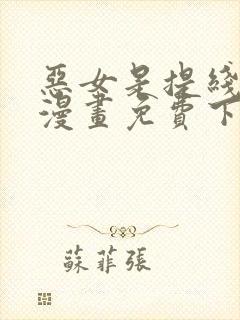 惡女是提綫
漫畫免費下
蘇菲張